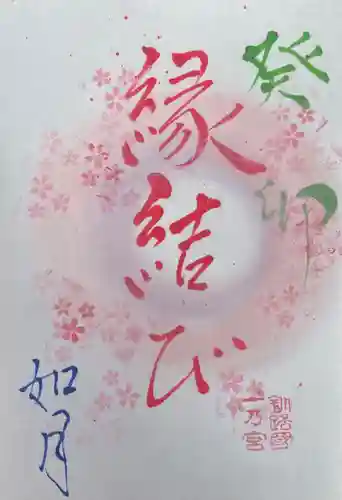 癸卯
縁結び
如月
釧路國
一乃宮